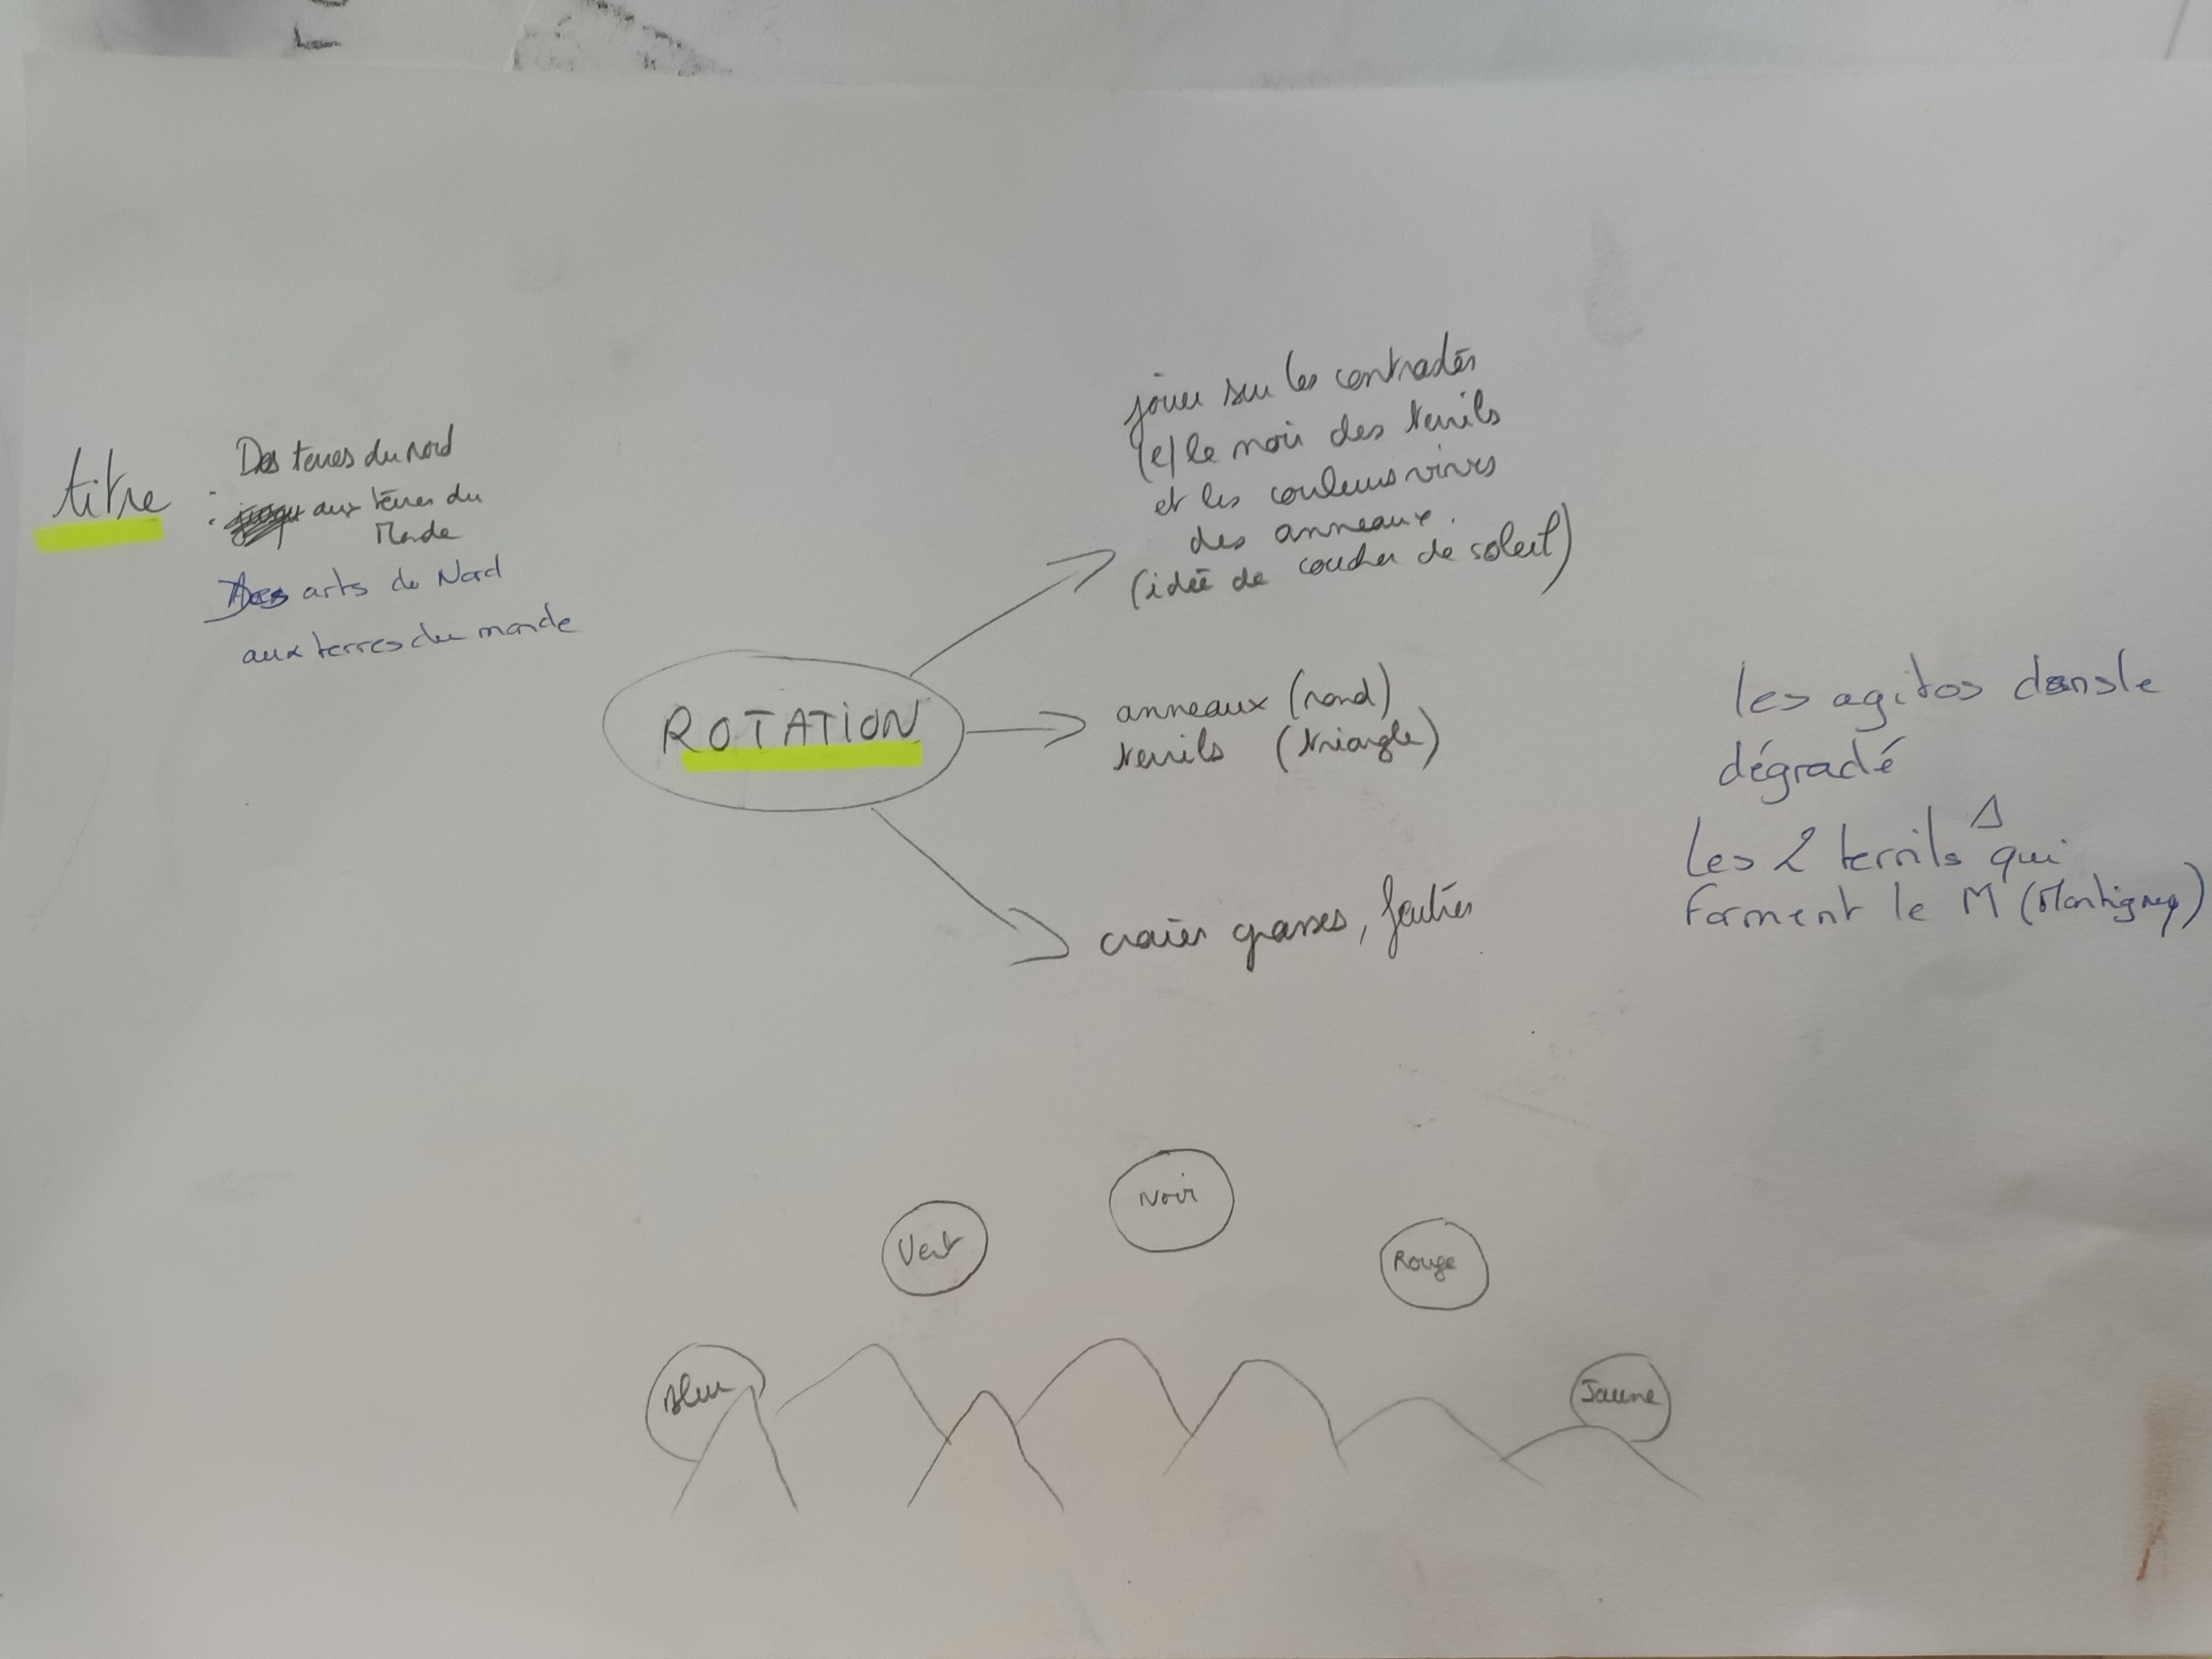 titre :
Des terres du nord
aux terres du
Monde
Des arts du Nord
aux terres du monde
ROTATION
jouer sur les contrastes
(e) le noir des terrils
et les couleurs vives
des anneaux.
(idée de coucher de soleil)
anneaux (rond)
terrils (triangle)
craies grasses, feutres
les agitos dans le
dégradé
Les 2 terrils qui
forment le M (Montigny)
Noir
Vert
Rouge
Bleu
Jaune